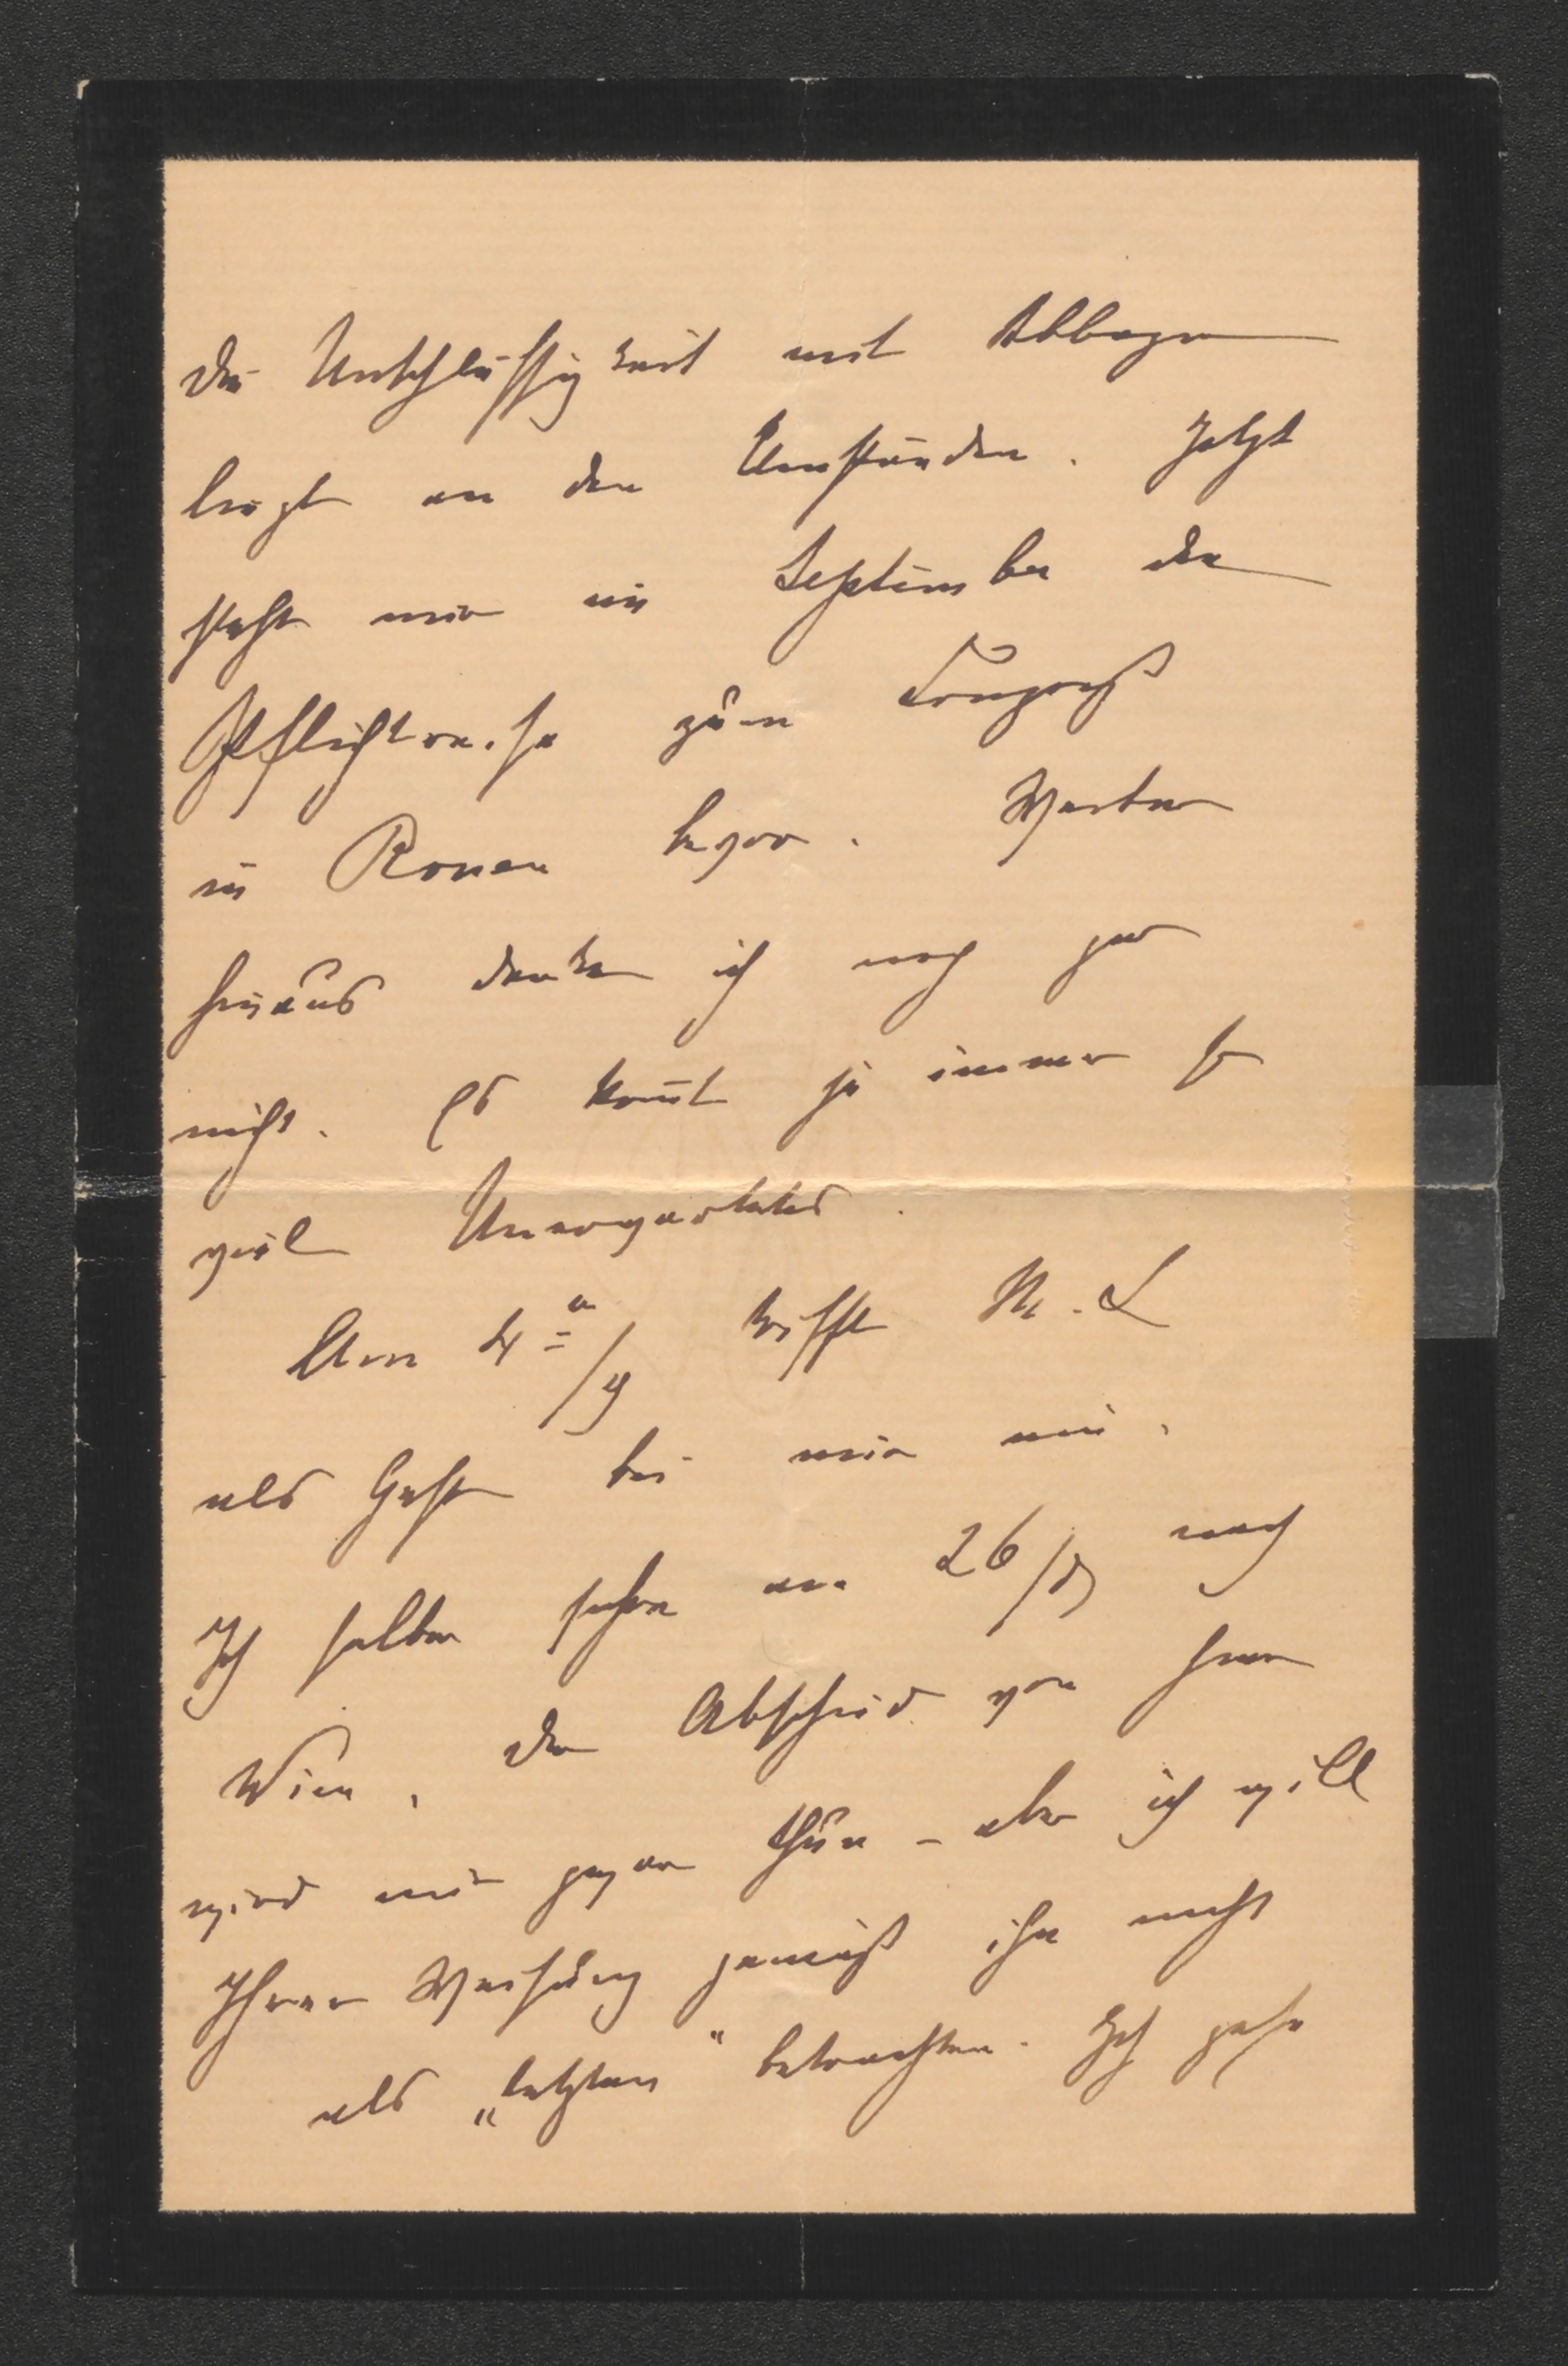 Die Unschlüssigkeit mit Abbazia
liegt an den Umständen. Jetzt
steht mir im September die
Pflichtreise zum Congreß
in Rouen bevor. Weiter
hinaus denke ich noch gar
nicht. Es kommt ja immer so
viel Unerwartetes.
Am 4n/9 trifft M. L
als Gast bei mir ein.
Ich selber fahre am 26/8 nach
Wien. Der Abschied von hier
wird mir schwer thun – aber ich will
Ihrer Weisung gemäß ihn nicht
als „letzten" betrachten. Ich gehe